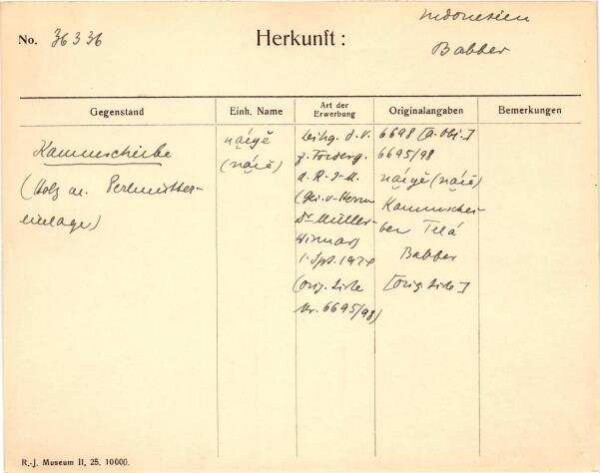 Indonesien
No. 36336 Herkunft:
Babber
Gegenstand Einh. Name Art der Erwerbung Originalangaben Bemerkungen
Kammscheibe
(Holz m. Perlmutter-
einlage)
náigĕ
(náiĕ)
Leihg. d. V.
z. Förderg.
d. R-J-M.
(Gesv. Herrn
Dr Müller
Wismar)
1. Spt. 1924
(orig. Liste
Nr. 6695/98)
6698 [a. Obj.]
6695/98
náigĕ (náiĕ)
Kammschei-
ben Telá
Babber
[orig. Liste]
R.-J. Museum II, 25. 10000.